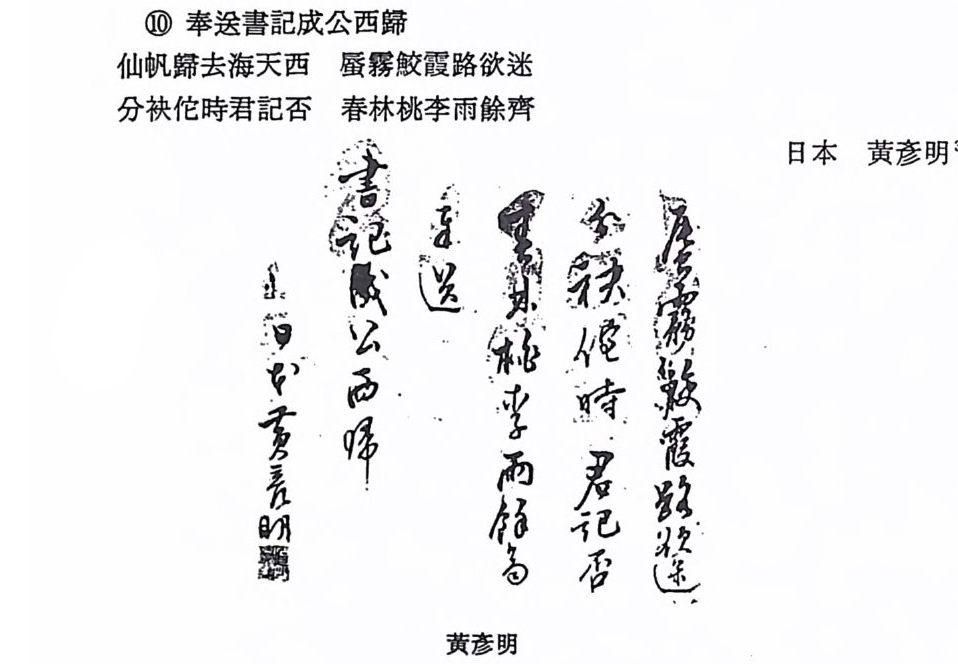 ⑩ 奉送書記成公西歸
仙帆歸去海天西　蜃霧鮫霞路欲迷
分袂佗時君記否　春林桃李雨餘齊
日本　黃彥明
蜃霧鮫霞路欲迷
分袂佗時君記否
春林桃李雨餘齊
奉送
書記成公西歸
日本黃彥明
黃彥明